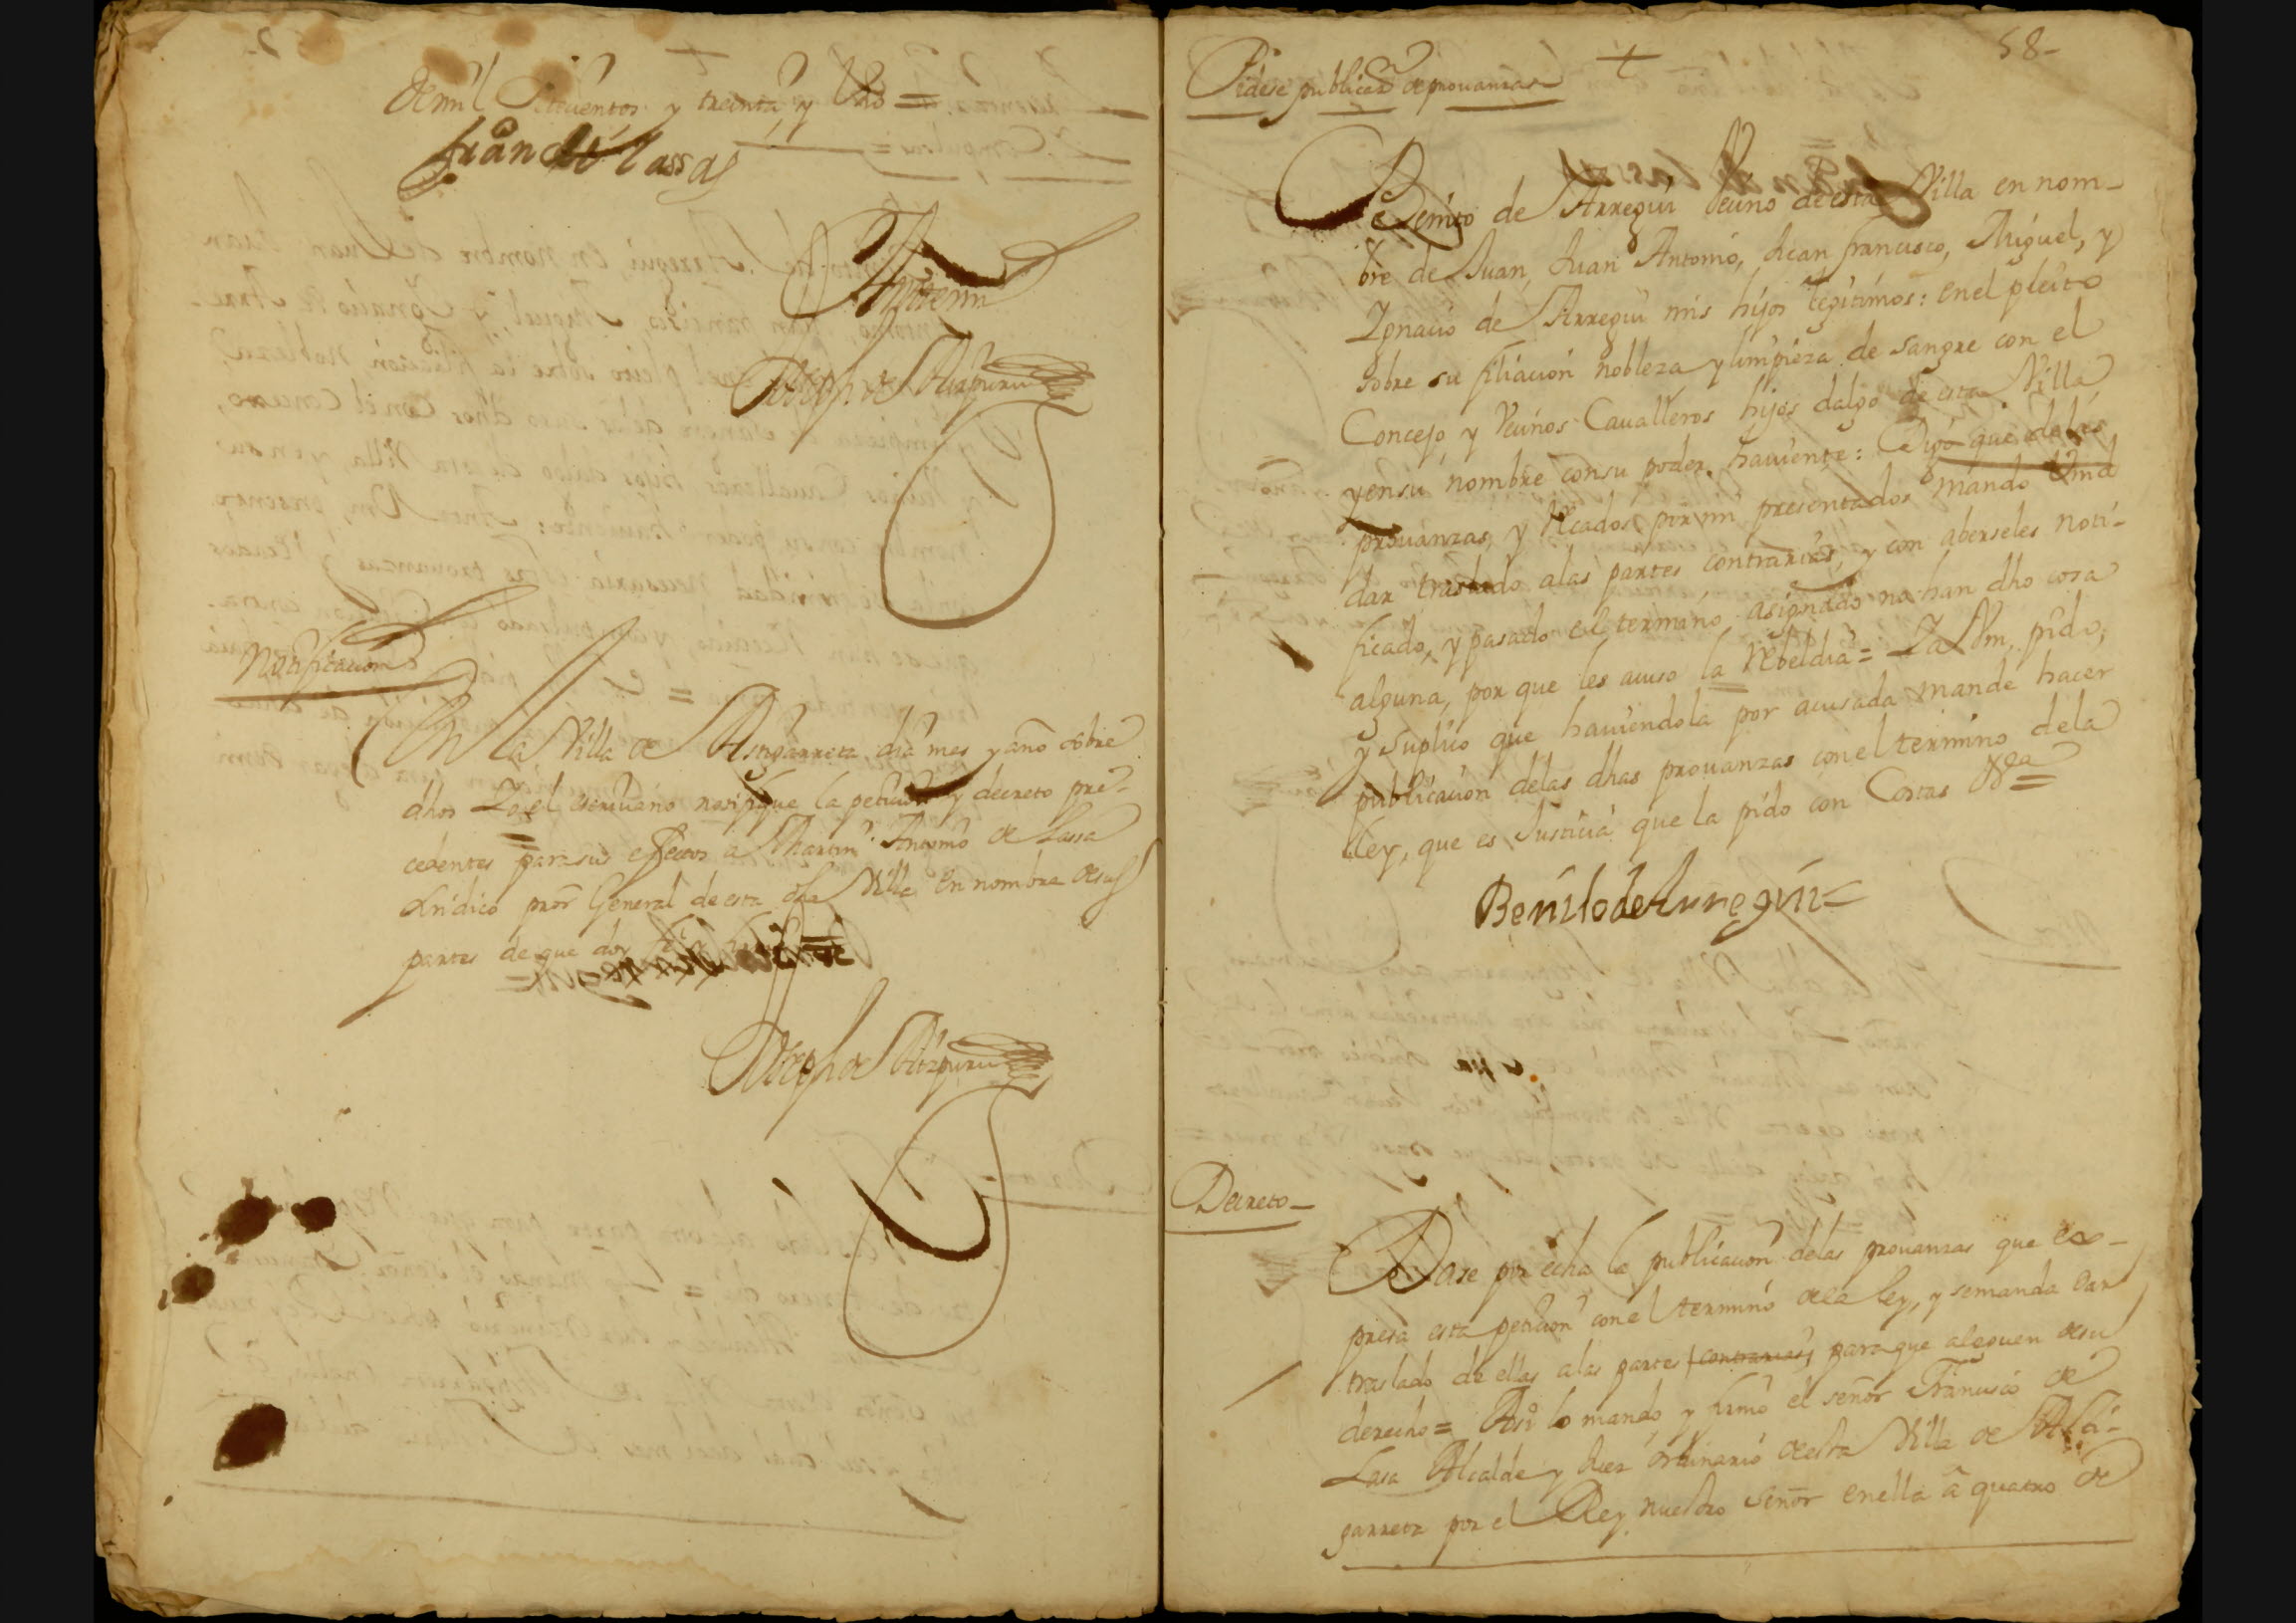 de mil setecientos y treinta y uno =
Fran de Lassa
Ante mi
Joseph de Aizpuru
Notificacion
En la Villa de Astigarreta dia mes y año sobre
dhos Yo el escriuano notifique la peticion y decreto pre-
cedentes para sus efectos a Martin Antonio de Lassa
sindico pror General de esta dha Villa en nombre de sus
partes de que doy fe
Joseph de Aizpuru
58-
Pidese publicaon de prouanzas
Benito de Arregui Vecino de esta Villa en nom-
bre de Juan, Juan Antonio, Juan francisco, Miguel, y
Ignacio de Arregui mis hijos legitimos: en el pleito
sobre su filiacion nobleza y limpieza de sangre con el
Concejo y Vecinos Caualleros hijos dalgo de esta Villa
y en su nombre con su poder hauiente: Digo que de las
prouanzas, y Recados por mi presentados mando Vmd
dar traslado a las partes contrarias, y con aberseles noti-
ficado, y pasado el termino asignado no han dho cosa
alguna, por que les acuso la Rebeldia = Y a Vm, pido,
y suplico que hauiendola por acusada mande hacer
publicacion de las dhas prouanzas con el termino de la
ley, que es Justicia que la pido con Costas &a =
Benito de Arregui
Decreto
Dase por echa la publicacion de las prouanzas que ex-
presa esta peticion con el termino de la ley, y se manda dar
traslado de ellas a las partes contrarias, para que aleguen de su
derecho = Asi lo mando, y firmo el señor Francisco de
Lasa Alcalde y Juez ordinario de esta Villa de Asti-
garreta por el Rey nuestro Señor en ella à quatro de